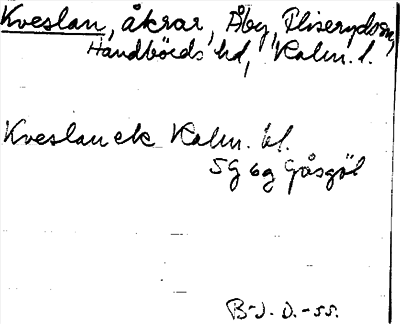 Kveslan, åkrar, Åby, Fliseryds sn,
Handbörds hd, Kalm. l.
Kveslan ek Kalm. bl.
5G 6g Gåsgöl
B-J. D. -55.